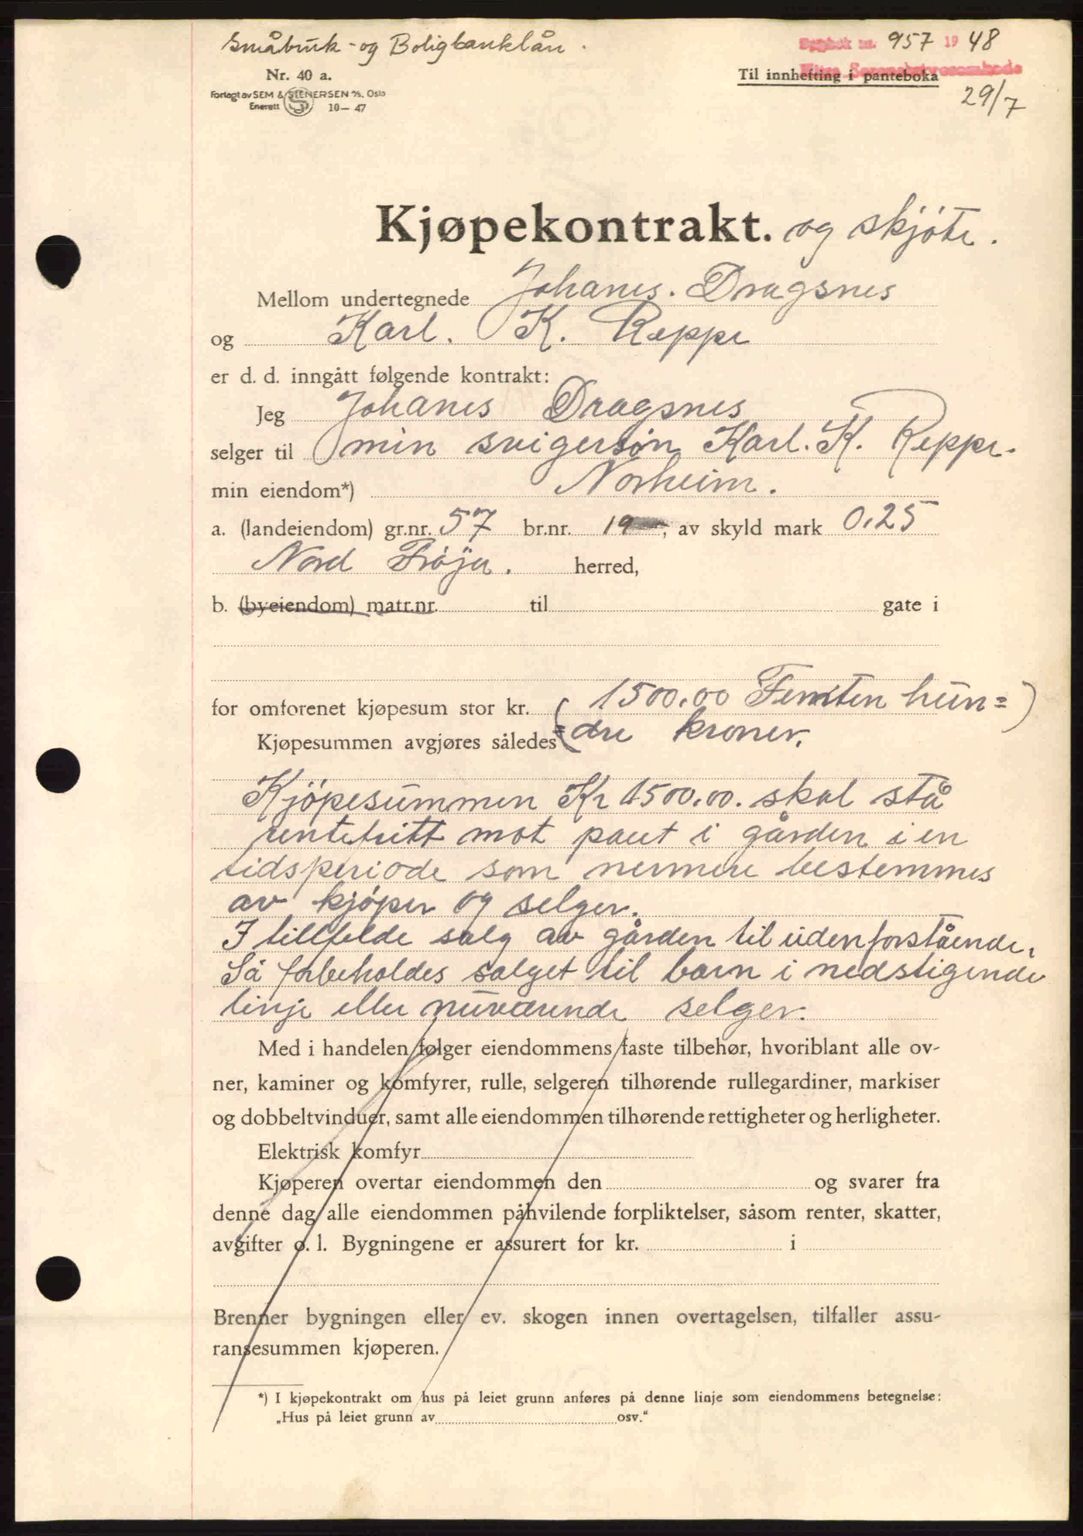 Småbruk- og Boligbanklån.
Dagbok nr. 957 1948
Nr. 40 a.
Til innhefting i panteboka
Forlagt av SEM & STENERSEN A/S, Oslo
Enerett 10-47
29/7
Kjøpekontrakt. og skjöte.
Mellom undertegnede Johanes. Dragsnes
og Karl. K. Reppe
er d. d. inngått følgende kontrakt:
Jeg Johanes Dragsnes
selger til min svigersön Karl. K. Reppe.
min eiendom*) Norheim.
a. (landeiendom) gr.nr. 57 br.nr. 19, av skyld mark 0.25
Nord Fröja. herred,
b. (byeiendom) matr.nr. til gate i
for omforenet kjøpesum stor kr. (1500.00 Femten hun=)
Kjøpesummen avgjøres således (=dre kroner.
Kjöpesummen Kr 1500.00. skal stå
rentefritt mot pant i gården i en
tidsperiode som nermere bestemmes
av kjöper og selger.
I tillfelde salg av gården til udenforstående,
Så forbeholdes salget til barn i nedstigende
linje eller nuværende selger.
Med i handelen følger eiendommens faste tilbehør, hvoriblant alle ov-
ner, kaminer og komfyrer, rulle, selgeren tilhørende rullegardiner, markiser
og dobbeltvinduer, samt alle eiendommen tilhørende rettigheter og herligheter.
Elektrisk komfyr
Kjøperen overtar eiendommen den og svarer fra
denne dag alle eiendommen påhvilende forpliktelser, såsom renter, skatter,
avgifter o. l. Bygningene er assurert for kr. i
Brenner bygningen eller ev. skogen innen overtagelsen, tilfaller assu-
ransesummen kjøperen.
*) I kjøpekontrakt om hus på leiet grunn anføres på denne linje som eiendommens betegnelse:
„Hus på leiet grunn av osv."